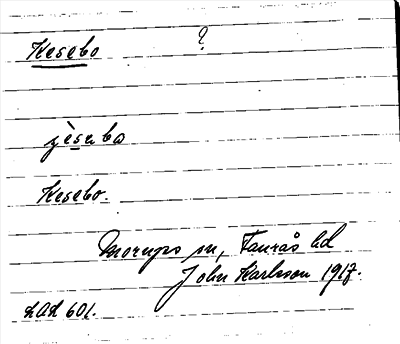 Kesebo ?
jèsebo
Kesebo.
Morups sn, Faurås hd
John Karlsson 1917.
LAL 601.